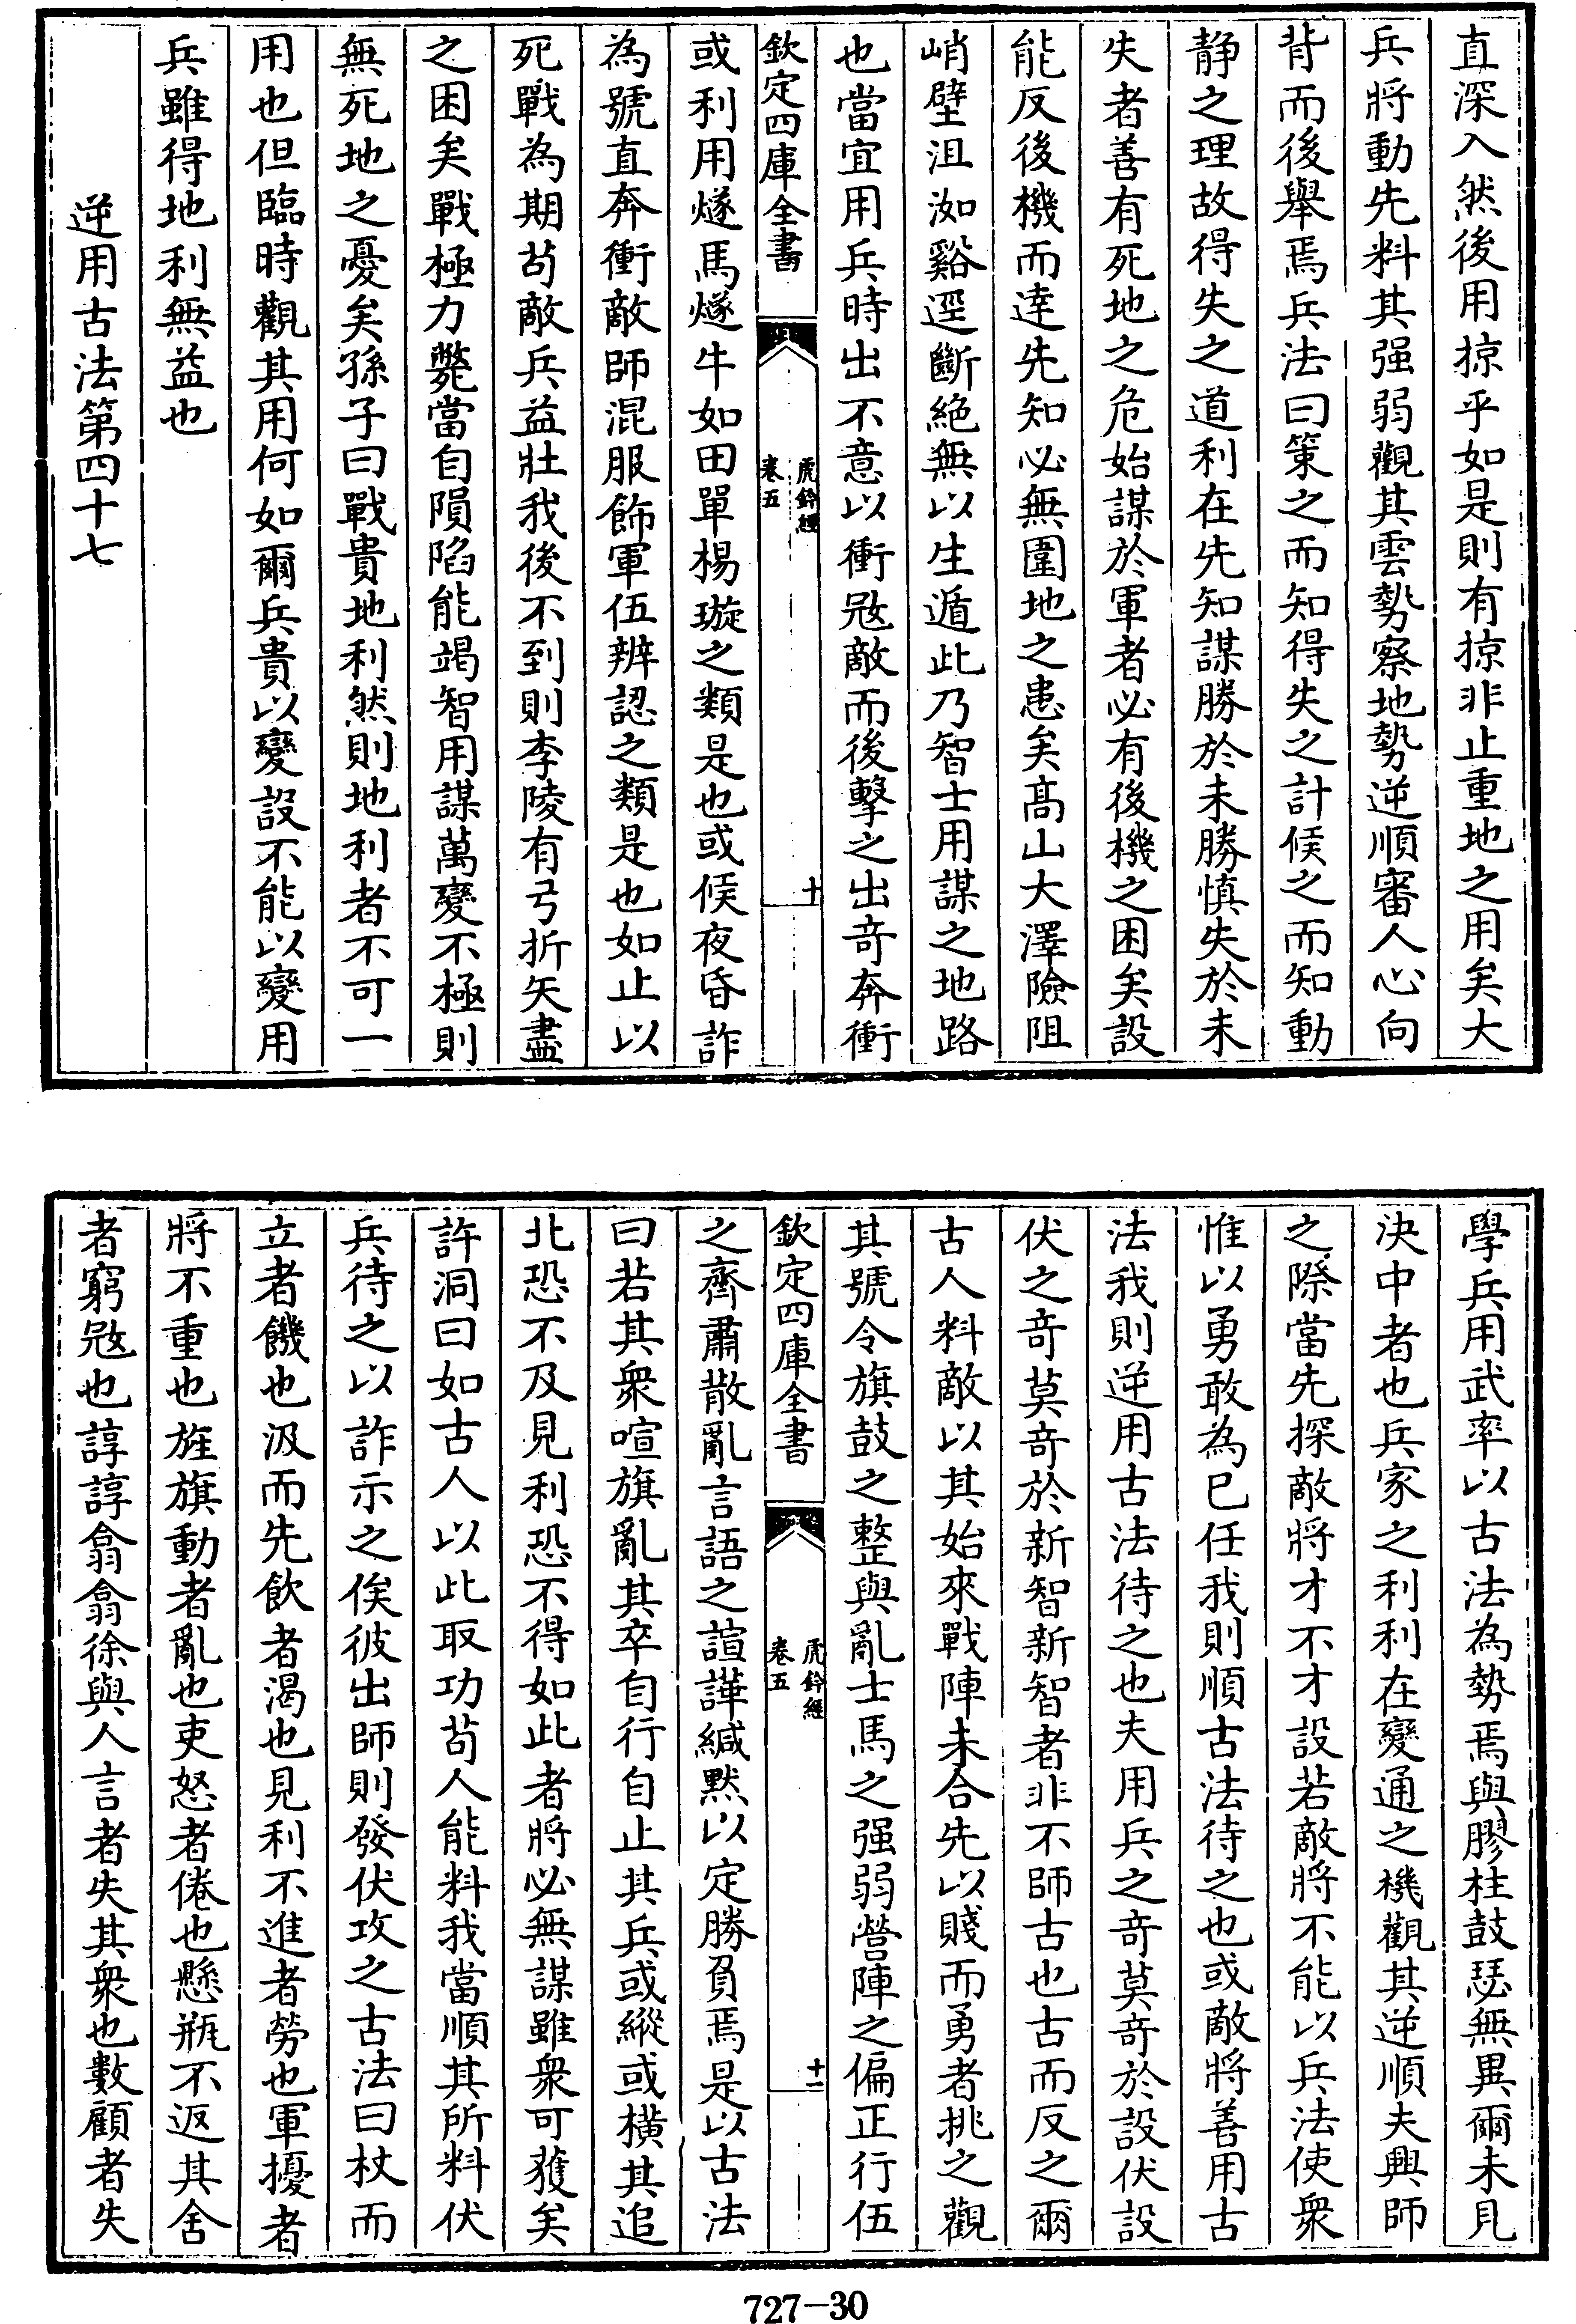 直深入然後用掠乎如是則有掠非止重地之用矣大
兵將動先料其强弱觀其雲勢察地勢逆順審人心向
背而後舉焉兵法曰策之而知得失之計候之而知動
静之理故得失之道利在先知謀勝於未勝慎失於未
失者善有死地之危始謀於軍者必有後機之困矣設
能反後機而逹先知必無圍地之患矣髙山大澤險阻
峭壁沮洳谿逕斷絶無以生遁此乃智士用謀之地路
也當宜用兵時出不意以衝㓂敵而後擊之出竒奔衝
欽定四庫全書
虎鈐經
卷五
十
或利用燧馬燧牛如田單楊璇之類是也或候夜昏詐
為號直奔衝敵師混服飾軍伍辨認之類是也如止以
死戰為期茍敵兵益壯我後不到則李陵有弓折矢盡
之困矣戰極力斃當自隕陷能竭智用謀萬變不極則
無死地之憂矣孫子曰戰貴地利然則地利者不可一
用也但臨時觀其用何如爾兵貴以變設不能以變用
兵雖得地利無益也
逆用古法第四十七
學兵用武率以古法為勢焉與膠柱鼓瑟無異爾未見
決中者也兵家之利利在變通之機觀其逆順夫興師
之際當先探敵將才不才設若敵將不能以兵法使衆
惟以勇敢為已任我則順古法待之也或敵將善用古
法我則逆用古法待之也夫用兵之竒莫竒於設伏設
伏之竒莫竒於新智新智者非不師古也古而反之爾
古人料敵以其始來戰陣未合先以賤而勇者挑之觀
其號令旗鼓之整與亂士馬之强弱營陣之偏正行伍
欽定四庫全書
虎鈐經
卷五
十一
之齊肅散亂言語之諠譁緘默以定勝負焉是以古法
曰若其衆喧旗亂其卒自行自止其兵或縱或横其追
北恐不及見利恐不得如此者將必無謀雖衆可獲矣
許洞曰如古人以此取功茍人能料我當順其所料伏
兵待之以詐示之俟彼出師則發伏攻之古法曰杖而
立者饑也汲而先飲者渴也見利不進者勞也軍擾者
將不重也旌旗動者亂也吏怒者倦也懸瓶不返其舍
者窮㓂也諄諄翕翕徐與人言者失其衆也數顧者失
727—30